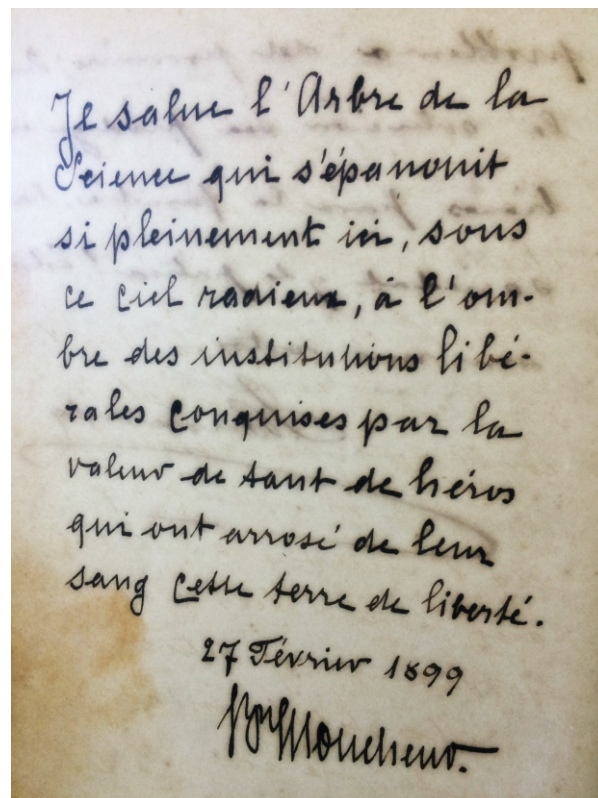 Je salue l'Arbre de la
Science qui s'épanouit
si pleinement ici, sous
ce ciel radieux, à l'om-
bre des institutions libé-
rales conquises par la
valeur de tant de héros
qui ont arrosé de leur
sang cette terre de liberté.
27 Février 1899